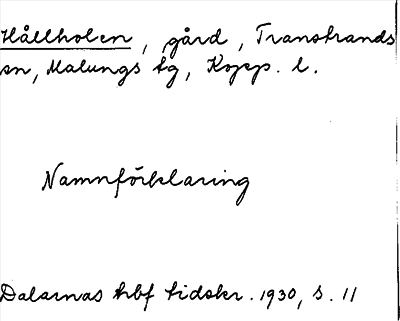 Hållholen, gård, Transtrands
sn, Malungs tg, Kopp. l.
Namnförklaring
Dalarnas hbf tidskr. 1930, s. 11